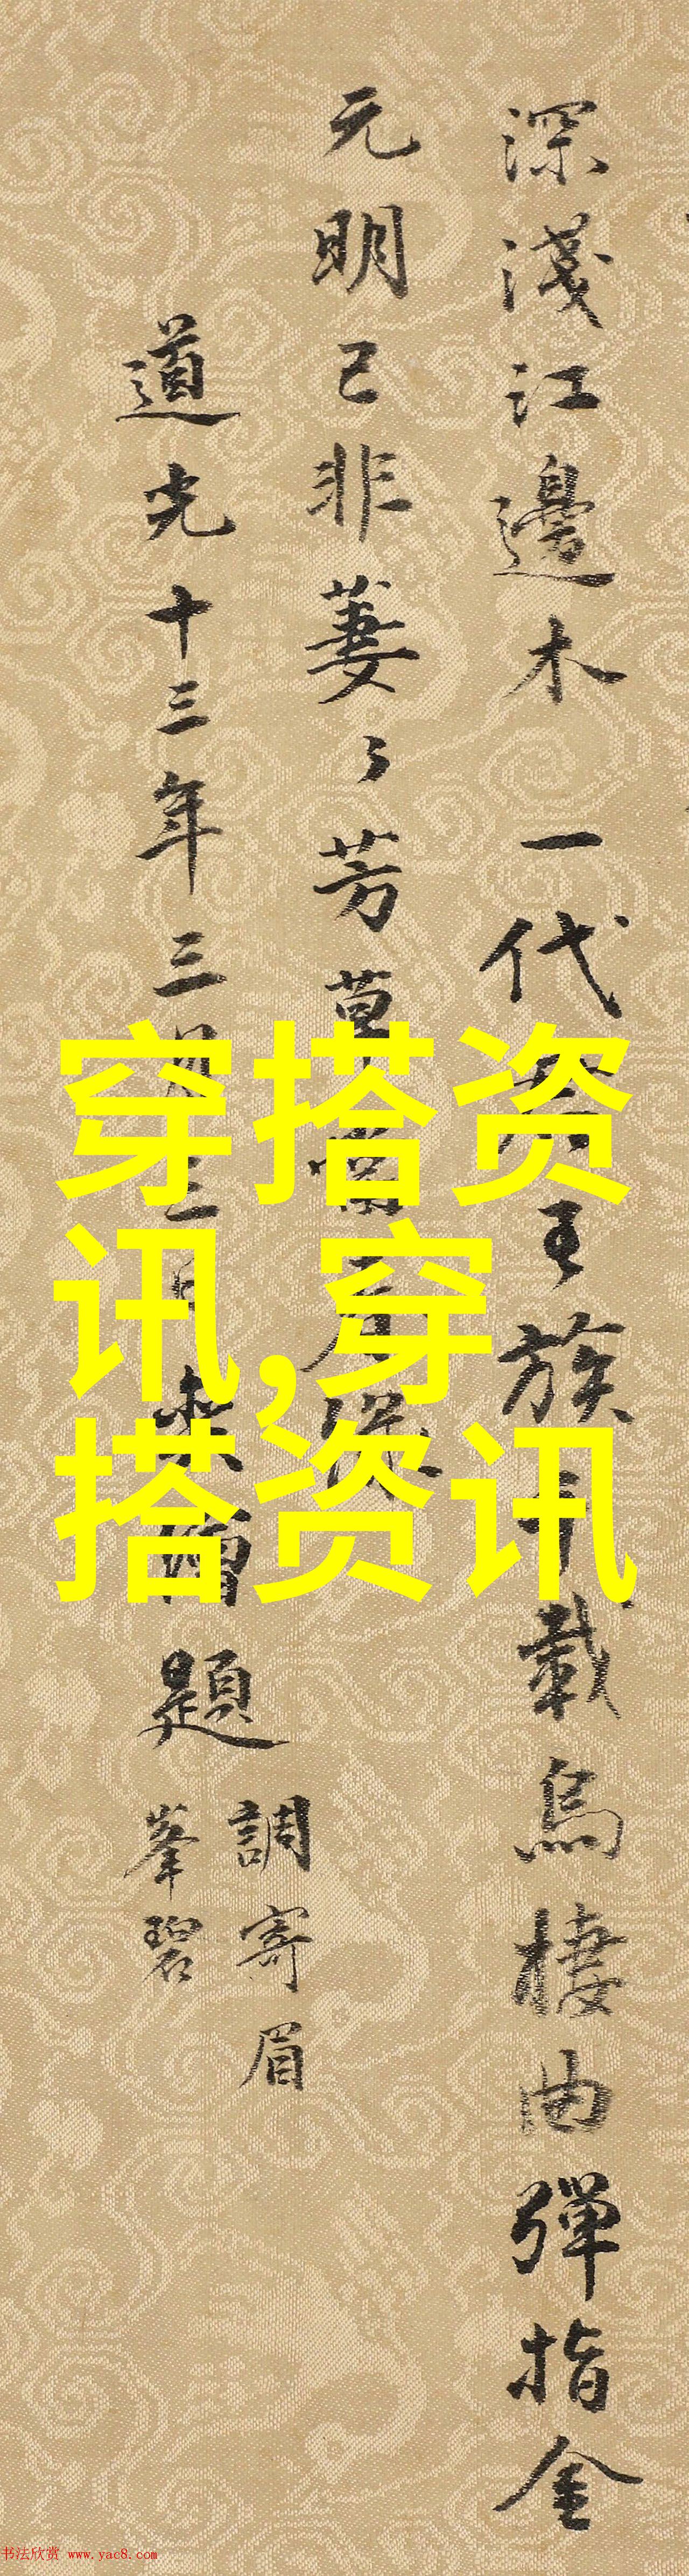 深淺江邊木一代 王族 載烏棲曲彈指金
元明已非萋〻芳草
道光十三年三月三日 題
調寄眉
峯碧
穿搭资
讯,穿
搭资讯
书法欣赏 www.yac8.com